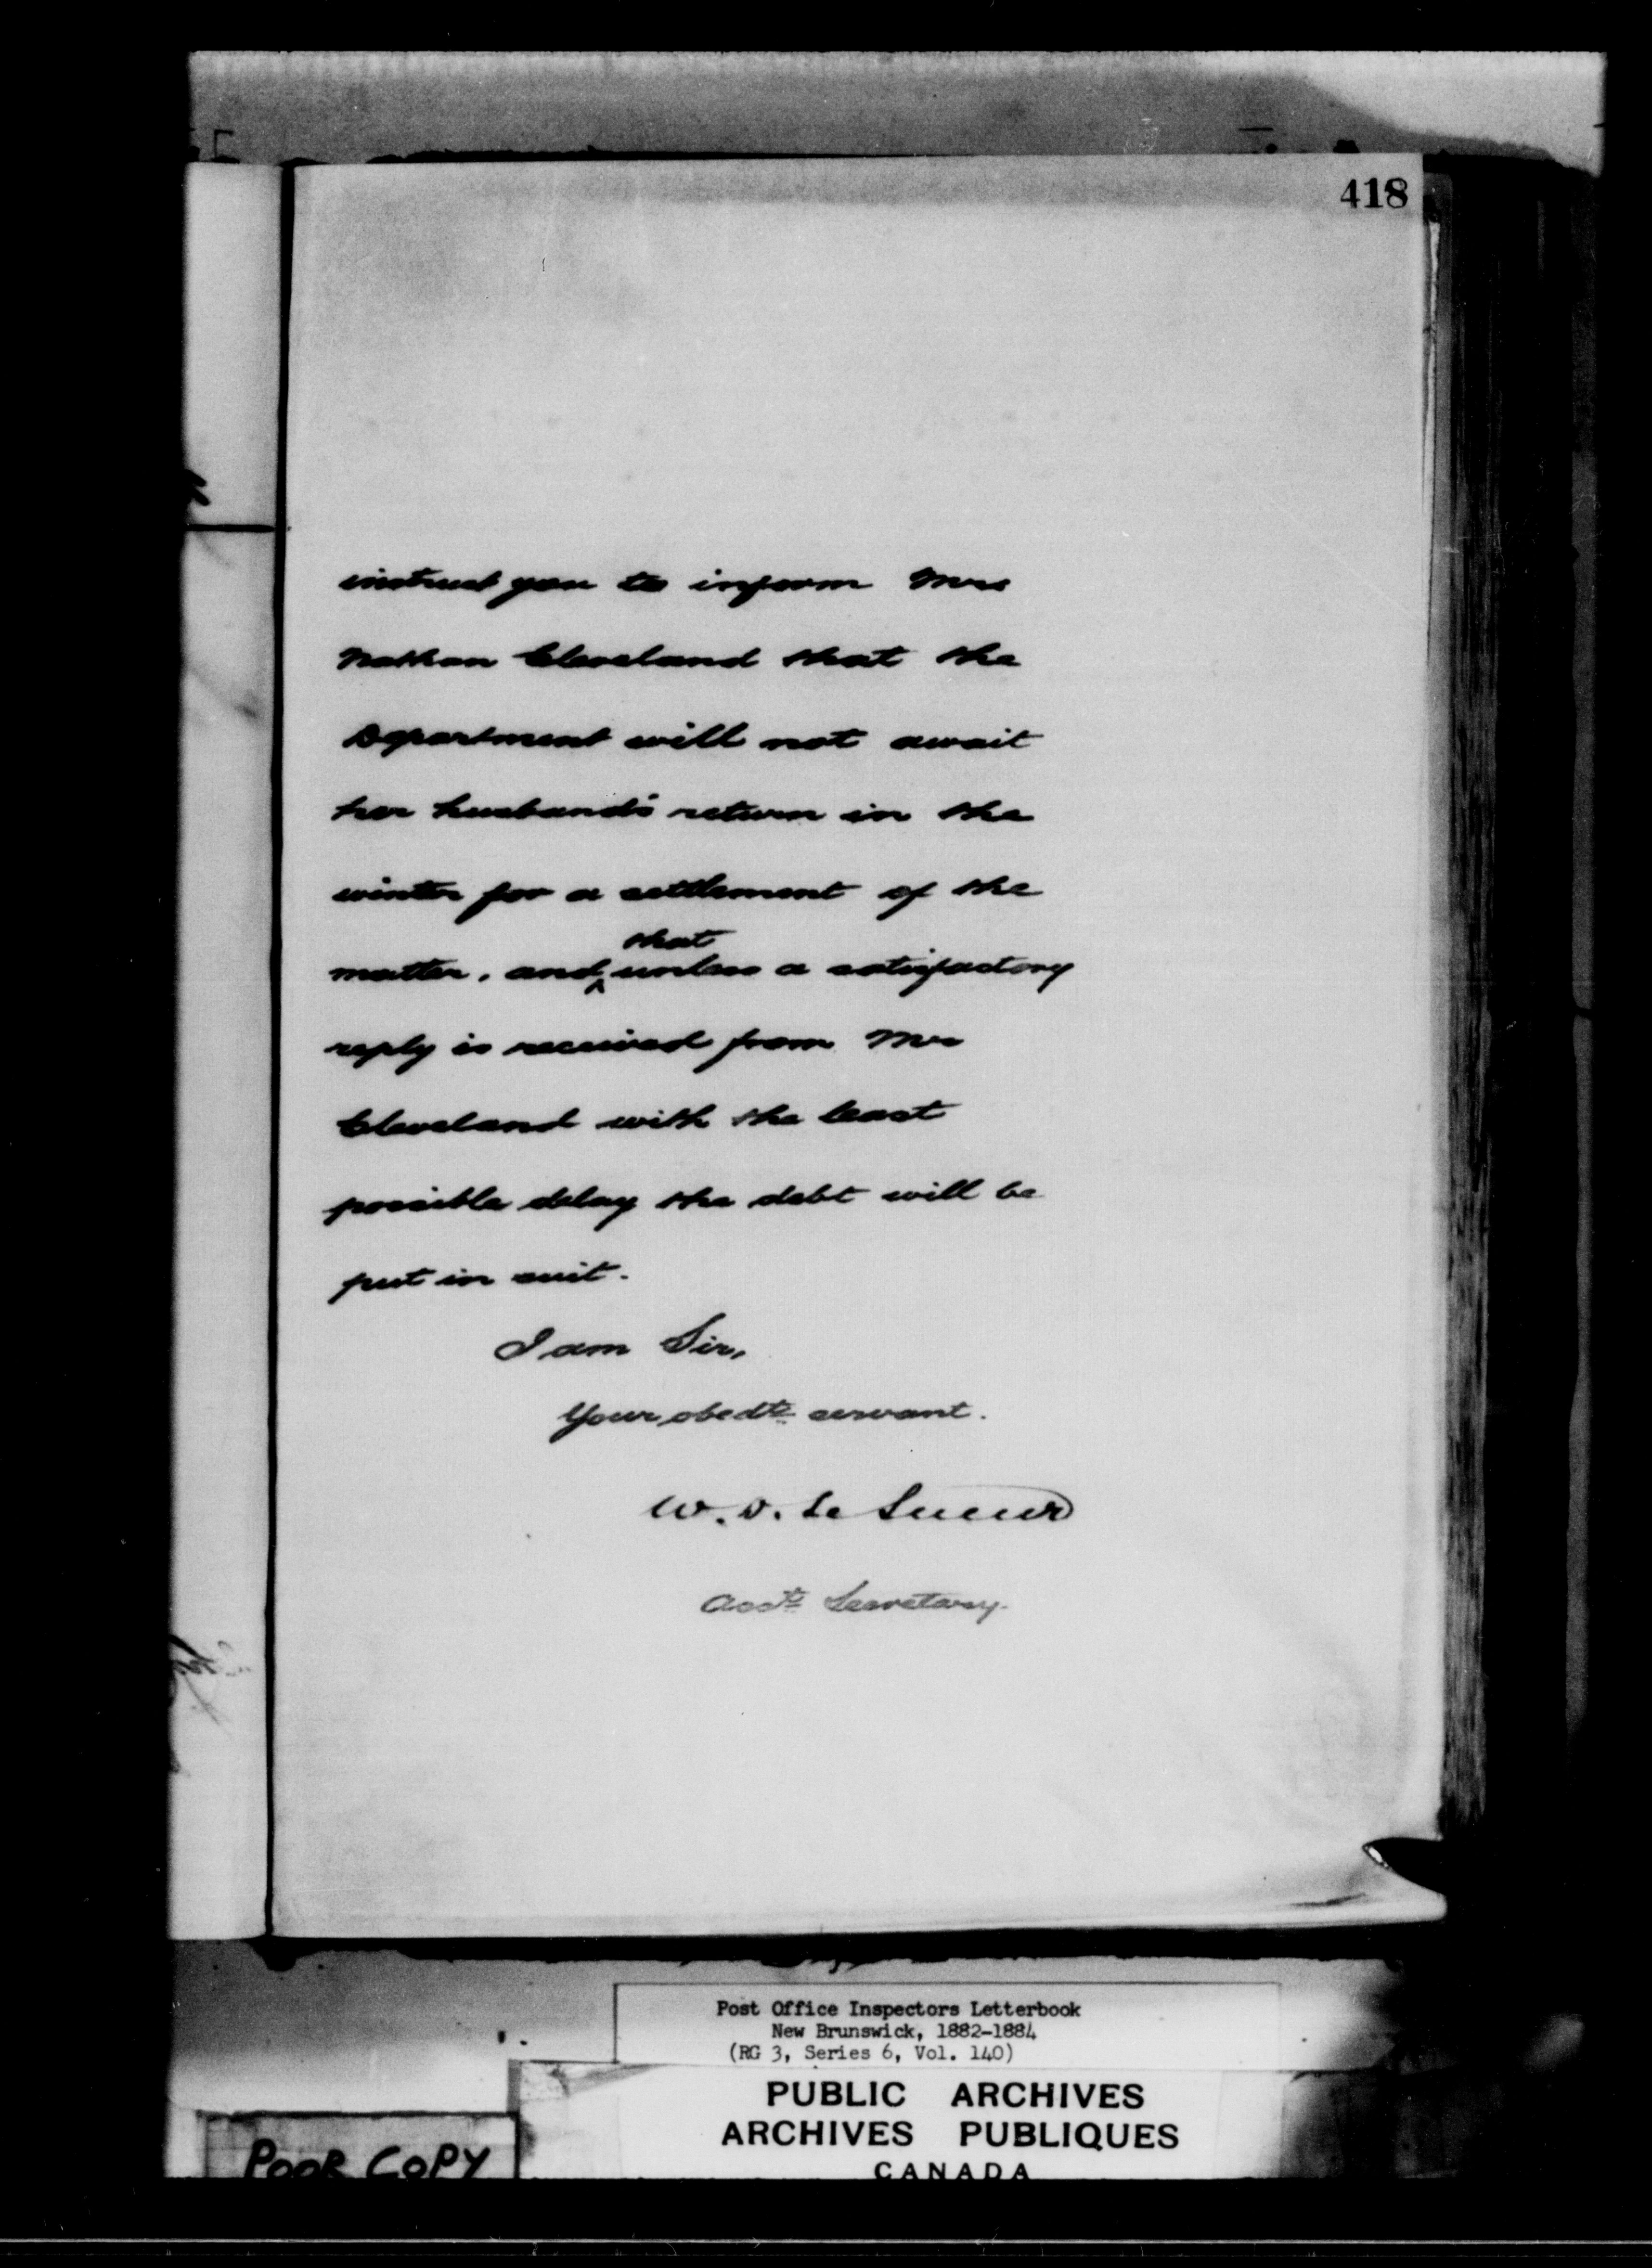 418
instruct you to inform Mrs
Nathan Cleveland that the
Department will not await
her husband's return in the
winter for a settlement of the
matter, and that unless a satisfactory
reply is received from Mr
Cleveland with the least
possible delay the debt will be
put in suit.
I am Sir,
Your obedt servant.
W. D. Le Sueur
Asst Secretary.
Post Office Inspectors Letterbook
New Brunswick, 1882-1884
(RG 3, Series 6, Vol. 140)
PUBLIC ARCHIVES
ARCHIVES PUBLIQUES
CANADA
POOR COPY